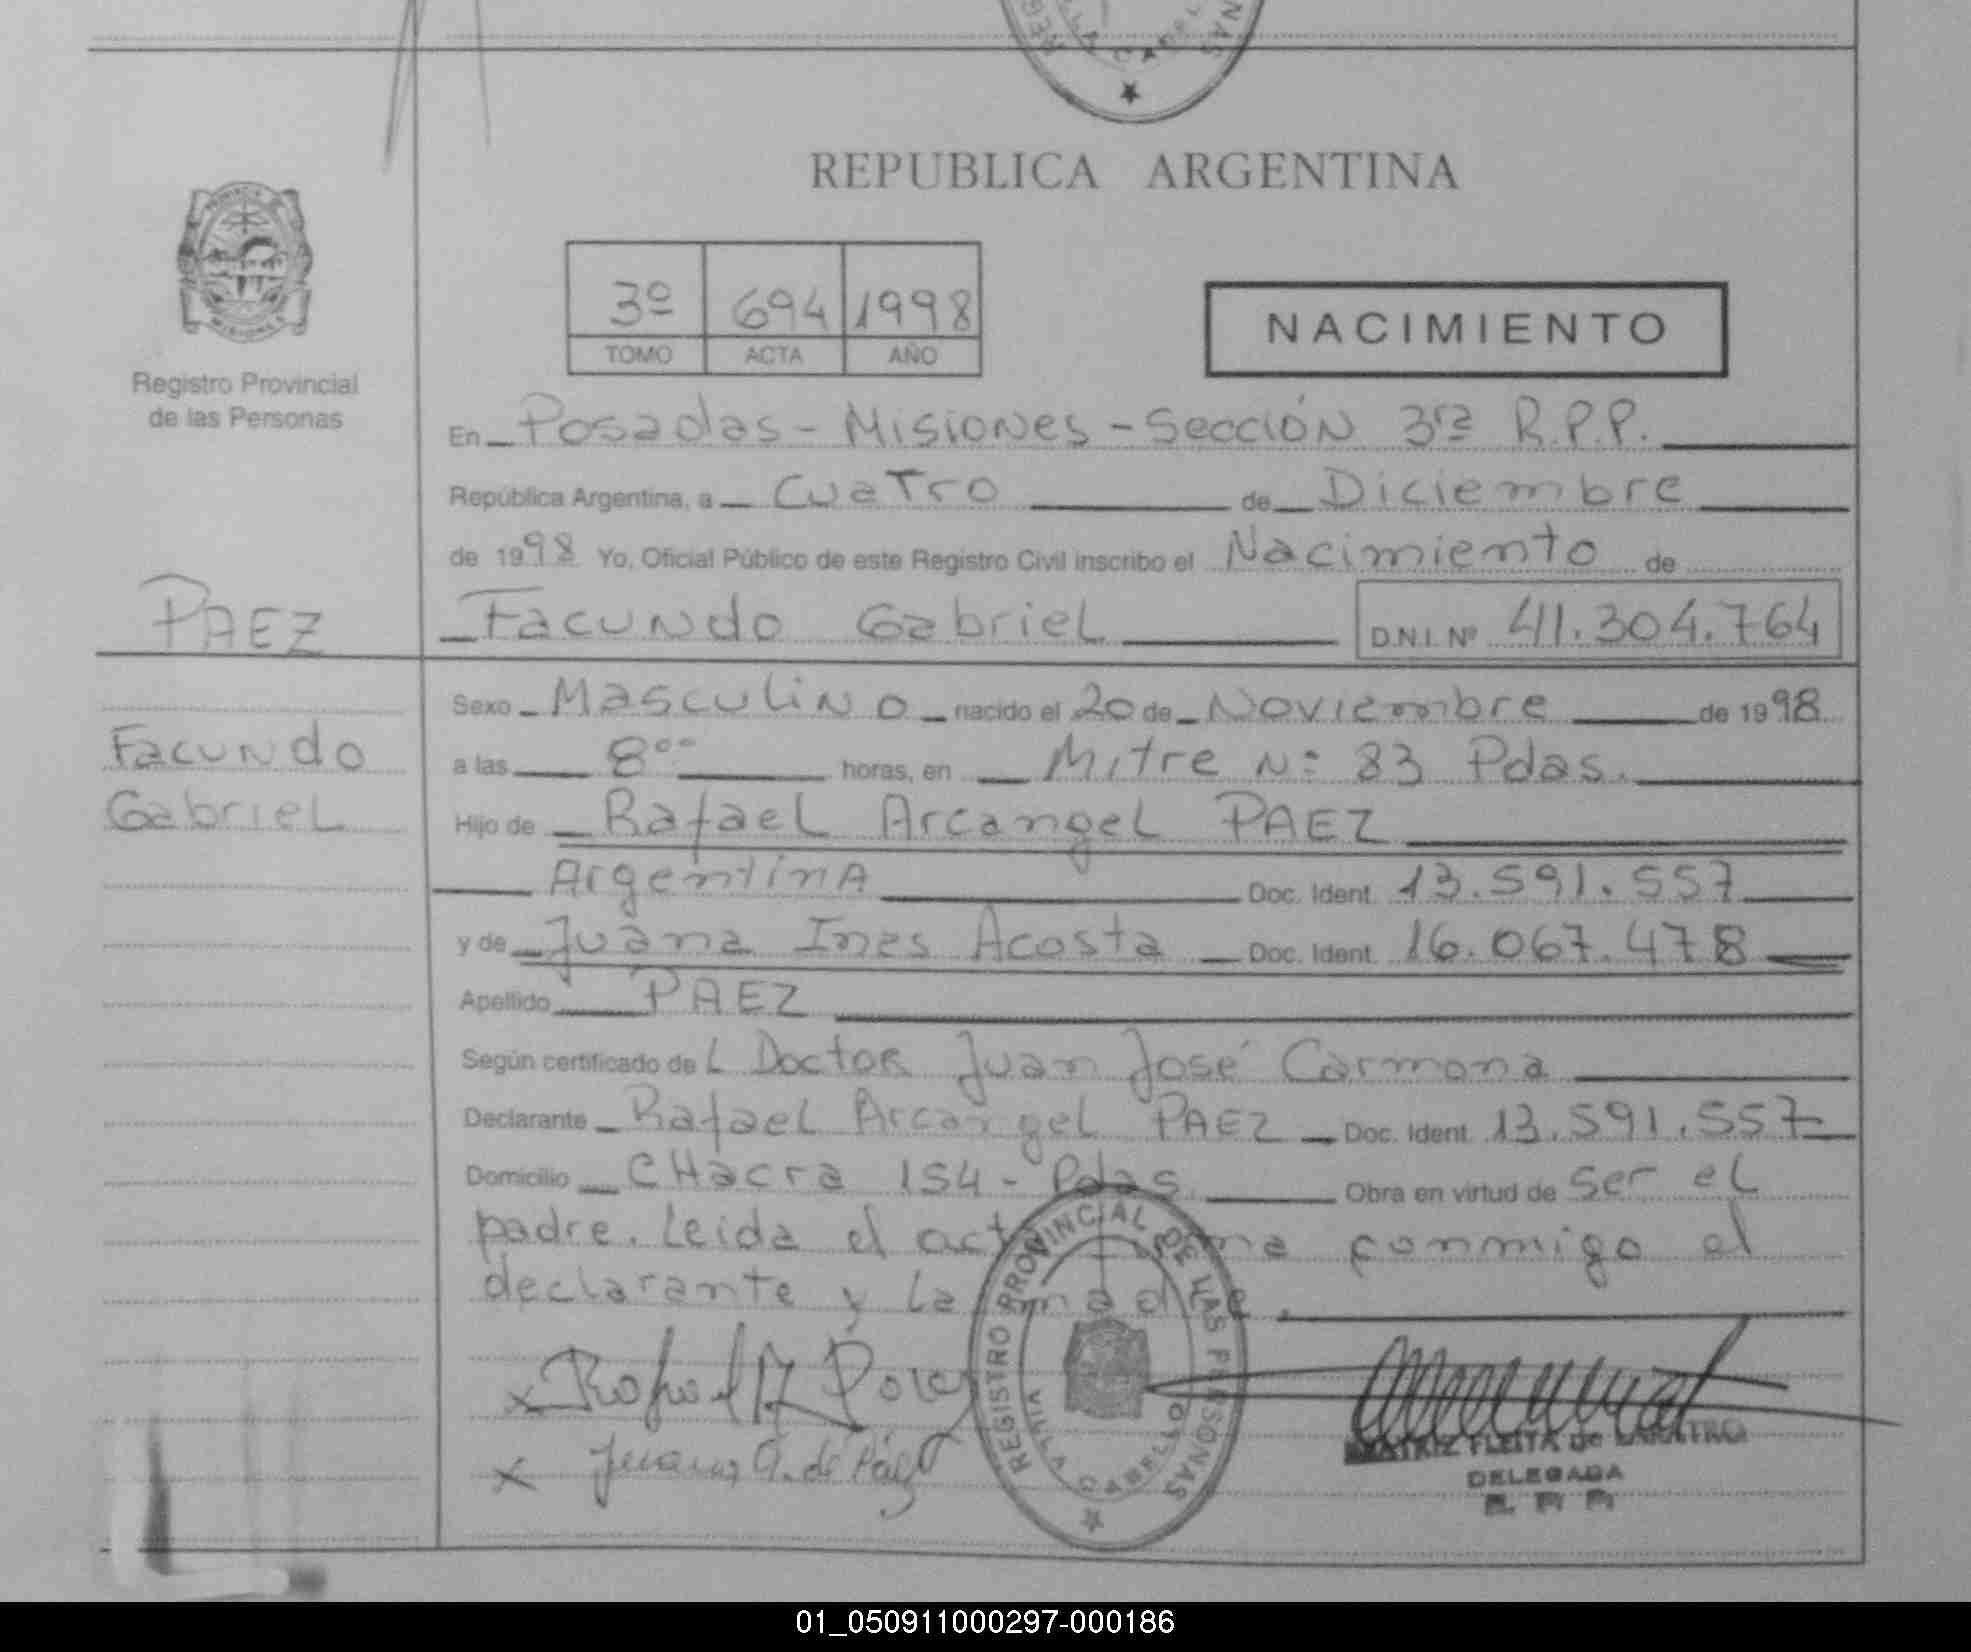 REPUBLICA ARGENTINA
PROVINCIA DE
MISIONES
Registro Provincial
de las Personas
3º 694 1998
TOMO ACTA AÑO
NACIMIENTO
En Posadas - Misiones - Sección 3ra R.P.P.
República Argentina, a Cuatro de Diciembre
de 1998 Yo, Oficial Público de este Registro Civil inscribo el Nacimiento de
PAEZ
Facundo Gabriel D.N.I. Nº 41.304.764
Sexo Masculino nacido el 20 de Noviembre de 1998
Facundo
Gabriel
a las 8°° horas, en Mitre N: 83 Pdas.
Hijo de Rafael Arcangel PAEZ
Argentina Doc. Ident. 13.591.557
y de Juana Ines Acosta Doc. Ident. 16.067.478
Apellido PAEZ
Según certificado de L Doctor Juan José Carmona
Declarante Rafael Arcangel PAEZ Doc. Ident. 13.591.557
Domicilio CHacra 154 - Pdas Obra en virtud de ser el
padre. Leida el acta firma conmigo el
declarante y la madre.
x Rafael A Paez
x Juana A. de Páez
REGISTRO PROVINCIAL DE LAS PERSONAS
VILLA CABELLO
BEATRIZ FLEITA de
DELEGADA
01_050911000297-000186